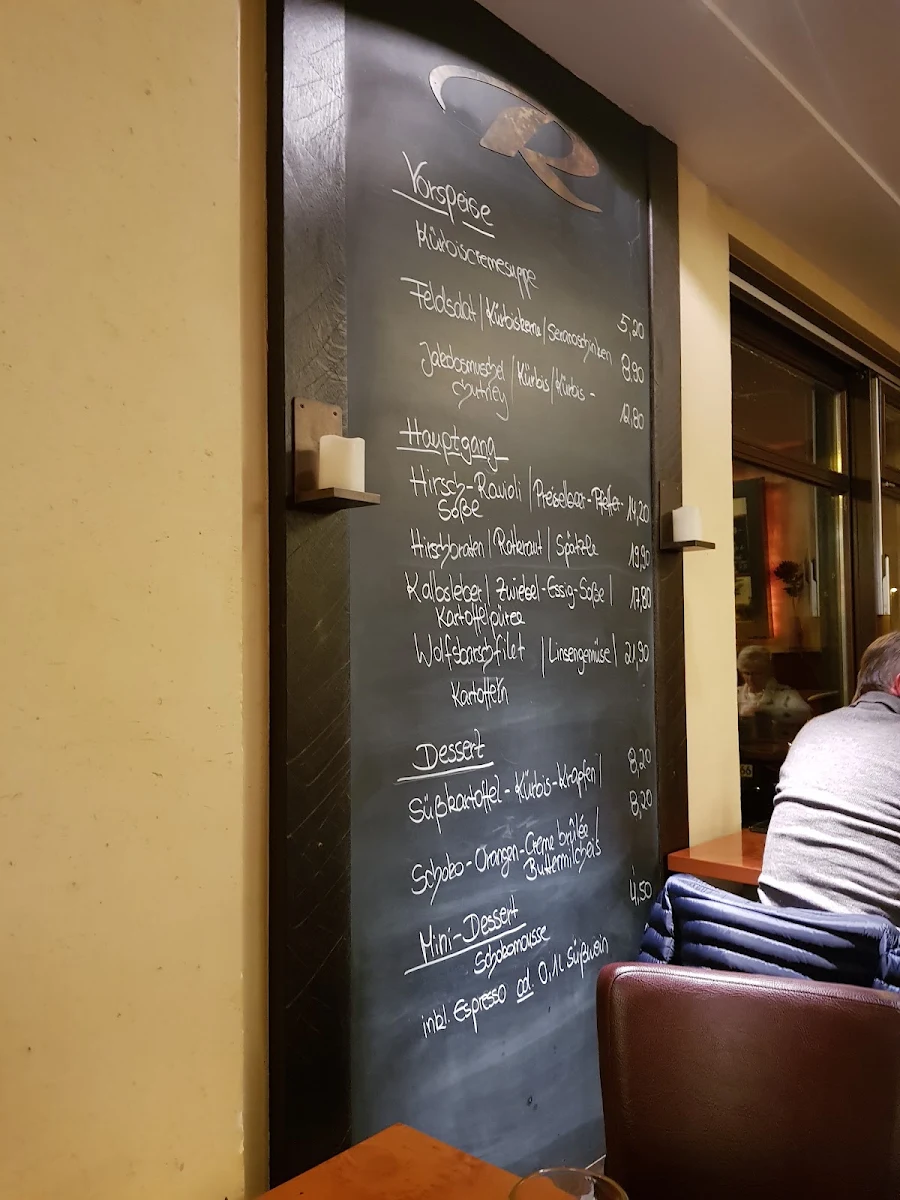 R
Vorspeise
Kürbiscremesuppe 5,20
Feldsalat | Kürbiskerne | Serranoschinken 8,90
Jakobsmuschel | Kürbis | Kürbis-
chutney 12,80
Hauptgang
Hirsch-Ravioli | Preiselbeer-Pfeffer-
Soße 14,20
Hirschbraten | Rotkraut | Spätzle 19,90
Kalbsleber | Zwiebel-Essig-Soße | 17,80
Kartoffelpüree
Wolfsbarschfilet | Linsengemüse | 21,90
Kartoffeln
Dessert
Süßkartoffel-Kürbis-Krapfen | 8,20
Schoko-Orangen-Creme brûlée | 8,20
Buttermilcheis
Mini-Dessert 4,50
Schokomousse
inkl. Espresso od. 0,1l Süßwein
66